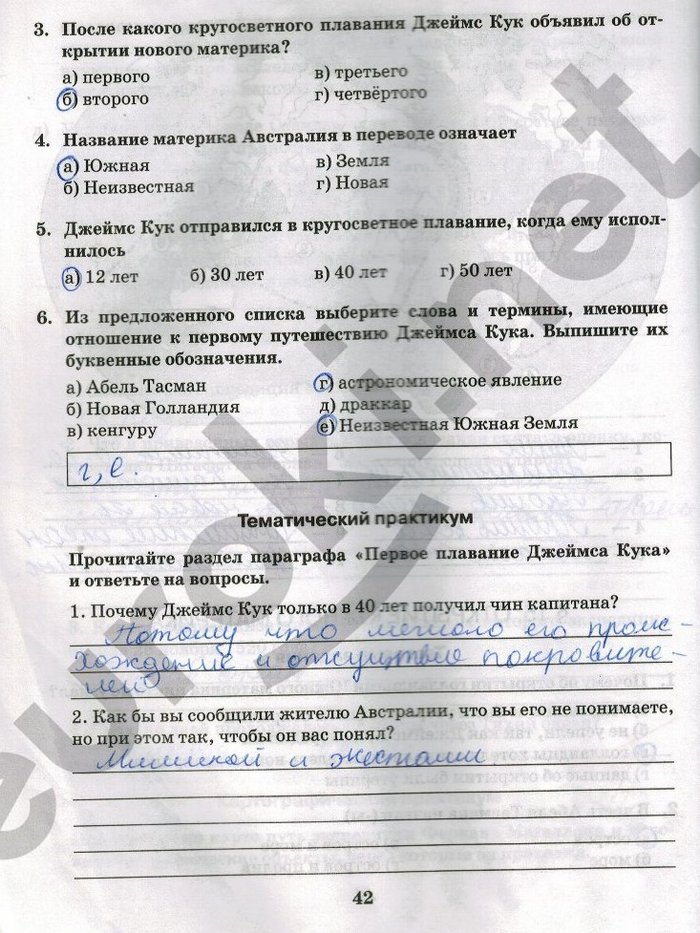 3. После какого кругосветного плавания Джеймс Кук объявил об от-
крытии нового материка?
а) первого
в) третьего
б) второго
г) четвёртого
4. Название материка Австралия в переводе означает
а) Южная
в) Земля
б) Неизвестная
г) Новая
5. Джеймс Кук отправился в кругосветное плавание, когда ему испол-
нилось
а) 12 лет б) 30 лет в) 40 лет г) 50 лет
6. Из предложенного списка выберите слова и термины, имеющие
отношение к первому путешествию Джеймса Кука. Выпишите их
буквенные обозначения.
а) Абель Тасман
г) астрономическое явление
б) Новая Голландия
д) драккар
в) кенгуру
е) Неизвестная Южная Земля
г, е.
Тематический практикум
Прочитайте раздел параграфа «Первое плавание Джеймса Кука»
и ответьте на вопросы.
1. Почему Джеймс Кук только в 40 лет получил чин капитана?
Потому что мешало его проис-
хождение и отсутствие покровите-
лей
2. Как бы вы сообщили жителю Австралии, что вы его не понимаете,
но при этом так, чтобы он вас понял?
Мимикой и жестами
42
euroki.net